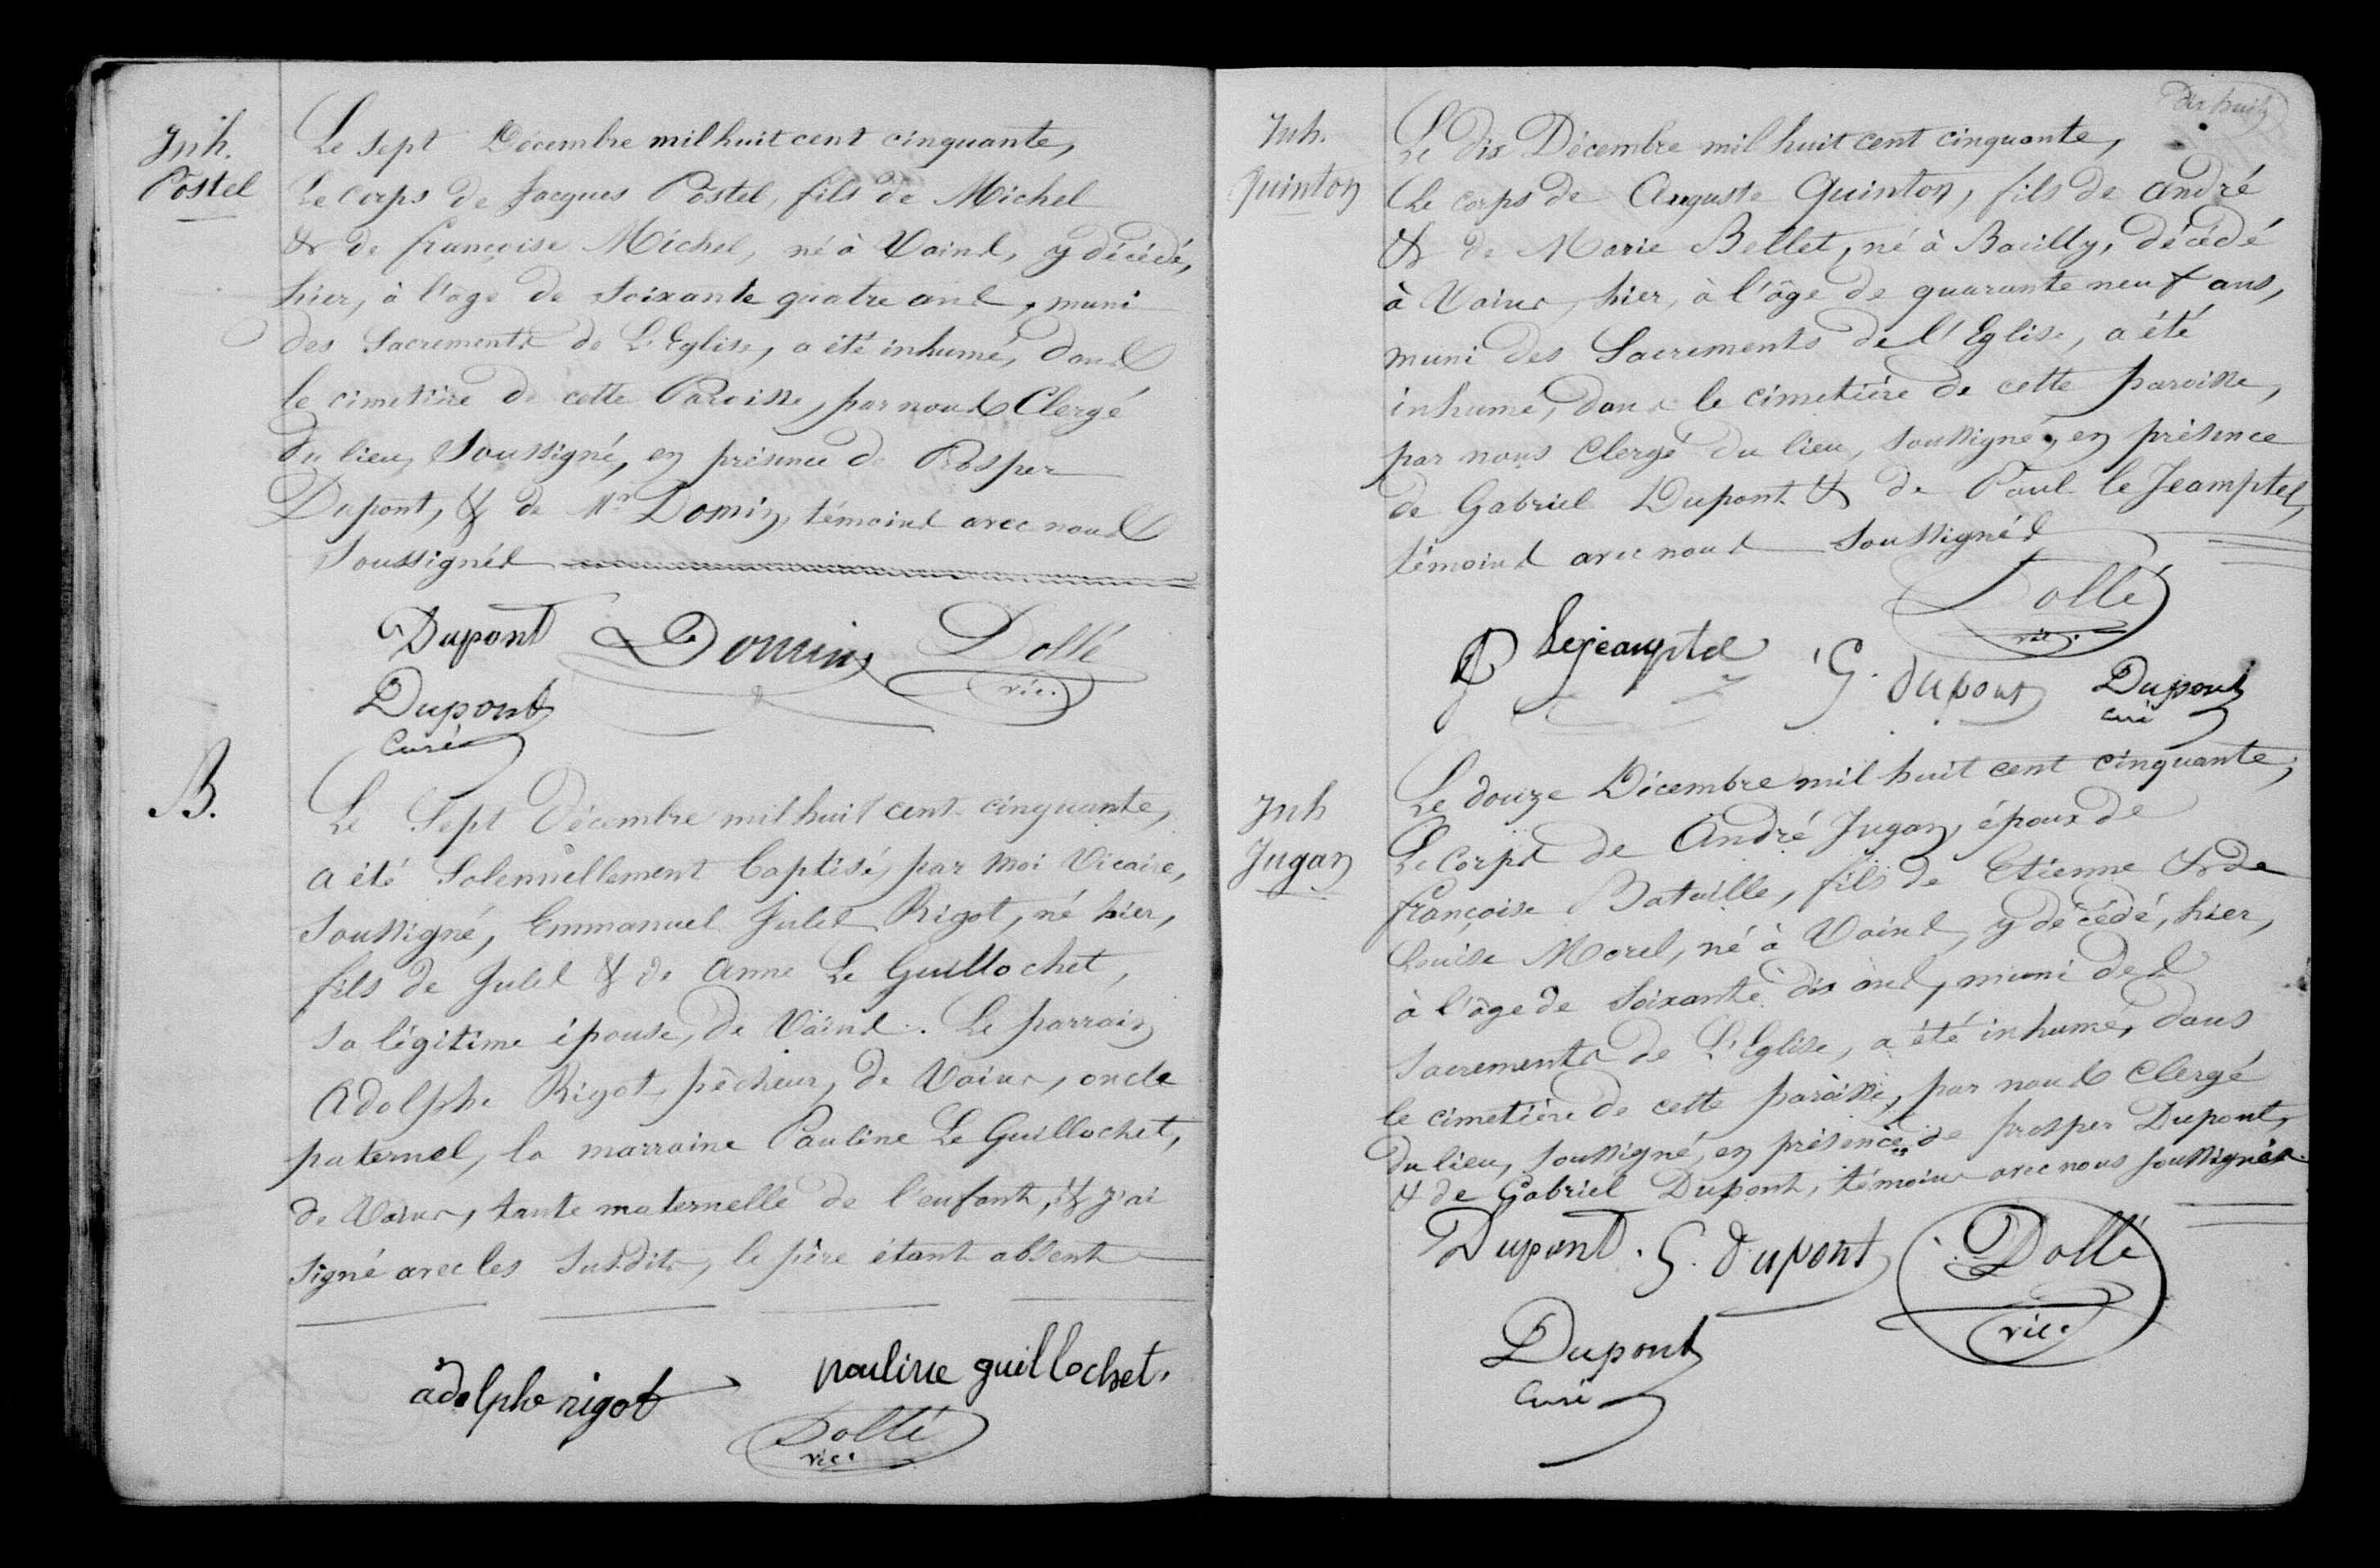 Inh.
Postel
Le sept Décembre mil huit cent cinquante,
Le corps de Jacques Postel, fils de Michel
& de françoise Michel, né à Vains, y décédé,
hier, à l'âge de soixante quatre ans, muni
des Sacrements de L'Eglise, a été inhumé, dans
le cimetière de cette Paroisse, par nous Clergé
du lieu, Soussigné, en présence de Prosper
Dupont, & de Mr Domin, témoins avec nous
Soussignés
Dupont Domin Dollé
vic.
Dupont
Curé
B.
Le Sept Décembre mil huit cent cinquante,
a été Solennellement baptisé, par moi Vicaire,
Soussigné, Emmanuel Jules Rigot, né hier,
fils de Jules & de Anne Le Guillochet,
sa légitime épouse, de Vains. Le parrain
Adolphe Rigot pêcheur, de Vains, oncle
paternel, la marraine Pauline Le Guillochet,
de Vains, tante maternelle de l'enfant, & j'ai
signé avec les Susdits, le père étant absent
adolphe rigot pauline guillochet.
Dollé
vic.
Dix huit
Inh.
Quinton
Le dix Décembre mil huit cent cinquante,
Le corps de Auguste Quinton, fils de André
& de Marie Bellet, né à Bacilly, décédé
à Vains, hier, à l'âge de quarante neuf ans,
muni des Sacrements de l'Eglise, a été
inhumé, dans le cimetière de cette paroisse,
par nous Clergé du lieu, soussigné, en présence
de Gabriel Dupont & de Paul le Jeamptel,
témoins avec nous soussignés
Dollé
vic.
P Lejeamptel G. dupont Dupont
curé
Inh
Jugan
Le douze Décembre mil huit cent cinquante,
Le Corps de André Jugan, époux de
françoise Bataille, fils de Etienne & de
Louise Morel, né à Vains, y décédé, hier,
à l'âge de soixante dix ans, muni des
Sacrements de L'Eglise, a été inhumé, dans
le cimetière de cette paroisse, par nous Clergé
du lieu, soussigné, en présence de prosper Dupont,
& de Gabriel Dupont, témoins avec nous soussignés.
Dupont. G. dupont Dollé
vic.
Dupont
Curé